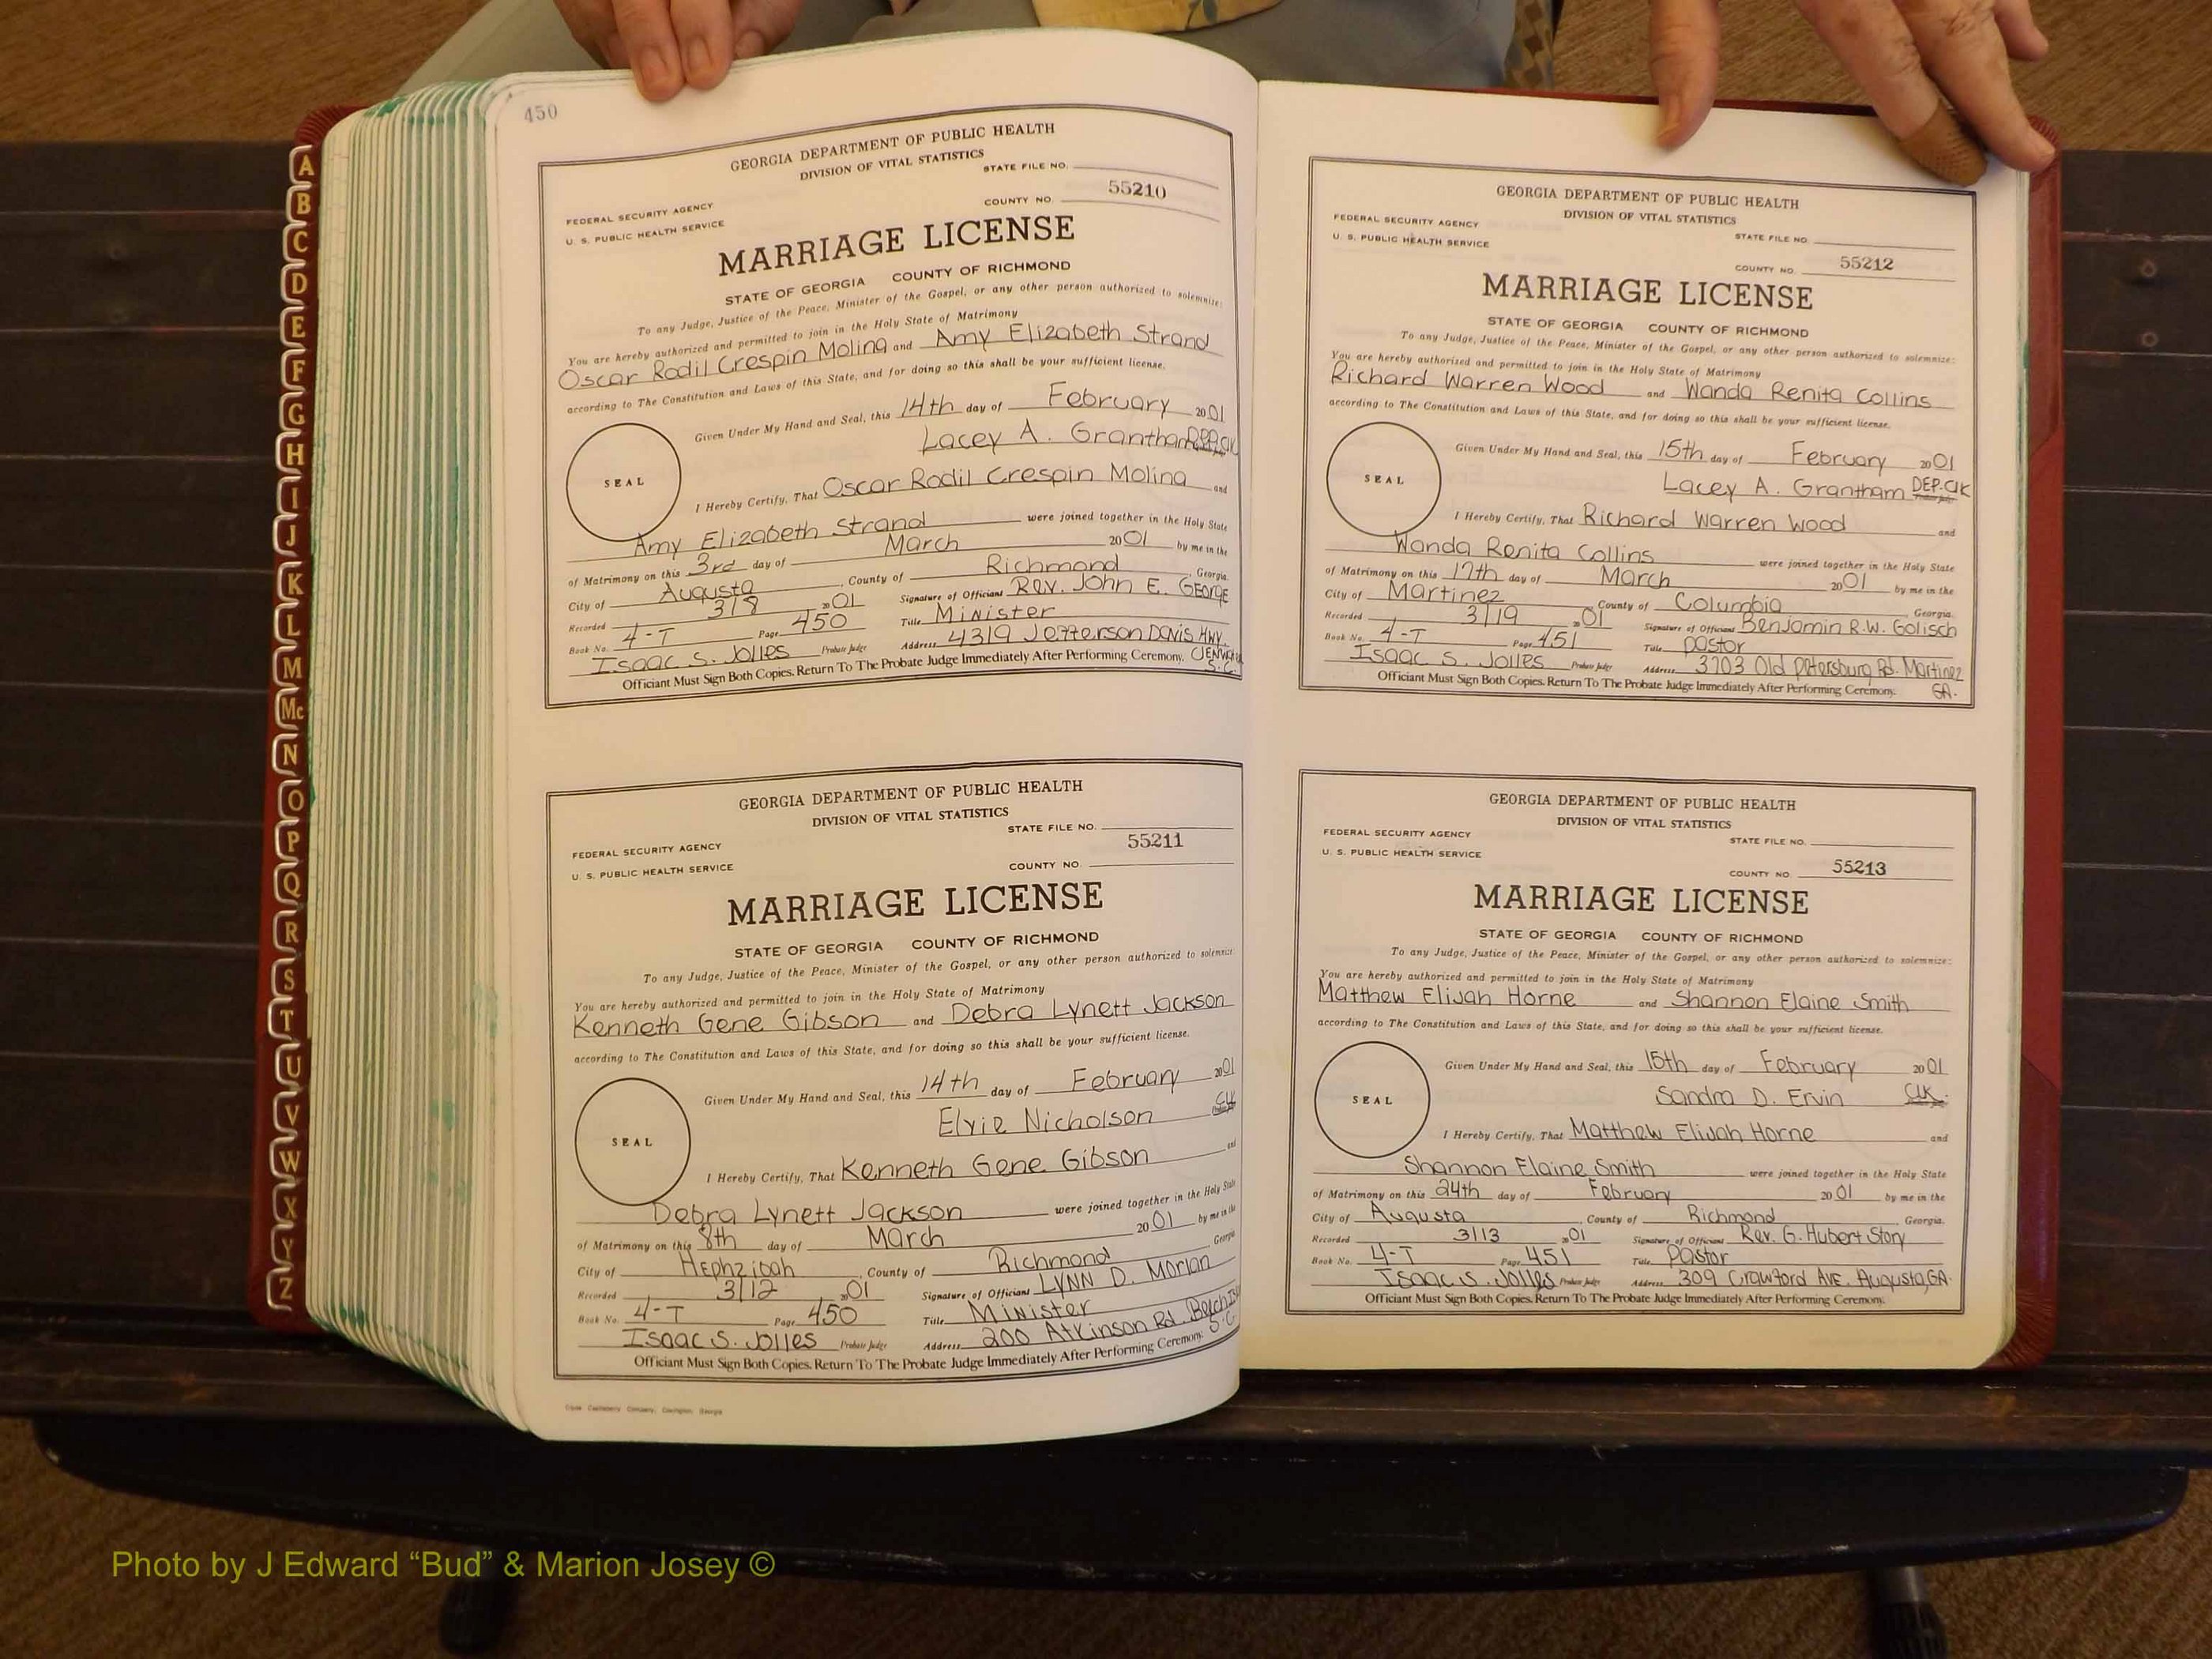 A
B
C
D
E
F
G
H
I
J
K
L
M
Mc
N
O
P
Q
R
S
T
U
V
W
X
Y
Z
450
GEORGIA DEPARTMENT OF PUBLIC HEALTH
DIVISION OF VITAL STATISTICS
STATE FILE NO.
55210
FEDERAL SECURITY AGENCY
COUNTY NO.
U. S. PUBLIC HEALTH SERVICE
MARRIAGE LICENSE
STATE OF GEORGIA COUNTY OF RICHMOND
To any Judge, Justice of the Peace, Minister of the Gospel, or any other person authorized to solemnize:
You are hereby authorized and permitted to join in the Holy State of Matrimony
Oscar Rodil Crespin Molina and Amy Elizabeth Strand
according to The Constitution and Laws of this State, and for doing so this shall be your sufficient license.
Given Under My Hand and Seal, this 14th day of February 2001
Lacey A. Grantham DEP.Clk
SEAL
I Hereby Certify, That Oscar Rodil Crespin Molina and
Amy Elizabeth Strand were joined together in the Holy State
of Matrimony on this 3rd day of March 2001 by me in the
City of Augusta, County of Richmond, Georgia.
Recorded 3/8 2001 Signature of Officiant Rev. John E. George
Book No. 4-T Page 450 Title Minister
Isaac S. Jolles Probate Judge Address 4319 Jefferson Davis Hwy.
S.C.
Officiant Must Sign Both Copies. Return To The Probate Judge Immediately After Performing Ceremony.
GEORGIA DEPARTMENT OF PUBLIC HEALTH
DIVISION OF VITAL STATISTICS
STATE FILE NO.
55211
FEDERAL SECURITY AGENCY
COUNTY NO.
U. S. PUBLIC HEALTH SERVICE
MARRIAGE LICENSE
STATE OF GEORGIA COUNTY OF RICHMOND
To any Judge, Justice of the Peace, Minister of the Gospel, or any other person authorized to solemnize:
You are hereby authorized and permitted to join in the Holy State of Matrimony
Kenneth Gene Gibson and Debra Lynett Jackson
according to The Constitution and Laws of this State, and for doing so this shall be your sufficient license.
Given Under My Hand and Seal, this 14th day of February 2001
Elvie Nicholson Clk
SEAL
I Hereby Certify, That Kenneth Gene Gibson and
Debra Lynett Jackson were joined together in the Holy State
of Matrimony on this 8th day of March 2001 by me in the
City of Hephzibah, County of Richmond Georgia
Recorded 3/12 2001 Signature of Officiant LYNN D. Morian
Book No. 4-T Page 450 Title Minister
Isaac S. Jolles Probate Judge Address 200 Atkinson Rd. Beech Isl S.C
Officiant Must Sign Both Copies. Return To The Probate Judge Immediately After Performing Ceremony.
GEORGIA DEPARTMENT OF PUBLIC HEALTH
DIVISION OF VITAL STATISTICS
FEDERAL SECURITY AGENCY
STATE FILE NO.
U. S. PUBLIC HEALTH SERVICE
COUNTY NO. 55212
MARRIAGE LICENSE
STATE OF GEORGIA COUNTY OF RICHMOND
To any Judge, Justice of the Peace, Minister of the Gospel, or any other person authorized to solemnize:
You are hereby authorized and permitted to join in the Holy State of Matrimony
Richard Warren Wood and Wanda Renita Collins
according to The Constitution and Laws of this State, and for doing so this shall be your sufficient license.
Given Under My Hand and Seal, this 15th day of February 2001
Lacey A. Grantham DEP.Clk
SEAL
I Hereby Certify, That Richard Warren Wood and
Wanda Renita Collins were joined together in the Holy State
of Matrimony on this 17th day of March 2001 by me in the
City of Martinez, County of Columbia Georgia.
Recorded 3/19 2001 Signature of Officiant Benjamin R.W. Golisch
Book No. 4-T Page 451 Title Pastor
Isaac S. Jolles Probate Judge Address 3703 Old Petersburg Rd. Martinez
GA.
Officiant Must Sign Both Copies. Return To The Probate Judge Immediately After Performing Ceremony.
GEORGIA DEPARTMENT OF PUBLIC HEALTH
DIVISION OF VITAL STATISTICS
FEDERAL SECURITY AGENCY
STATE FILE NO.
U. S. PUBLIC HEALTH SERVICE
COUNTY NO. 55213
MARRIAGE LICENSE
STATE OF GEORGIA COUNTY OF RICHMOND
To any Judge, Justice of the Peace, Minister of the Gospel, or any other person authorized to solemnize:
You are hereby authorized and permitted to join in the Holy State of Matrimony
Matthew Elijah Horne and Shannon Elaine Smith
according to The Constitution and Laws of this State, and for doing so this shall be your sufficient license.
Given Under My Hand and Seal, this 15th day of February 2001
Sandra D. Ervin Clk.
SEAL
I Hereby Certify, That Matthew Elijah Horne and
Shannon Elaine Smith were joined together in the Holy State
of Matrimony on this 24th day of February 2001 by me in the
City of Augusta, County of Richmond Georgia.
Recorded 3/13 2001 Signature of Officiant Rev. G. Hubert Story
Book No. 4-T Page 451 Title Pastor
Isaac S. Jolles Probate Judge Address 309 Crawford AVE. Augusta, GA.
Officiant Must Sign Both Copies. Return To The Probate Judge Immediately After Performing Ceremony.
Photo by J Edward “Bud” & Marion Josey ©